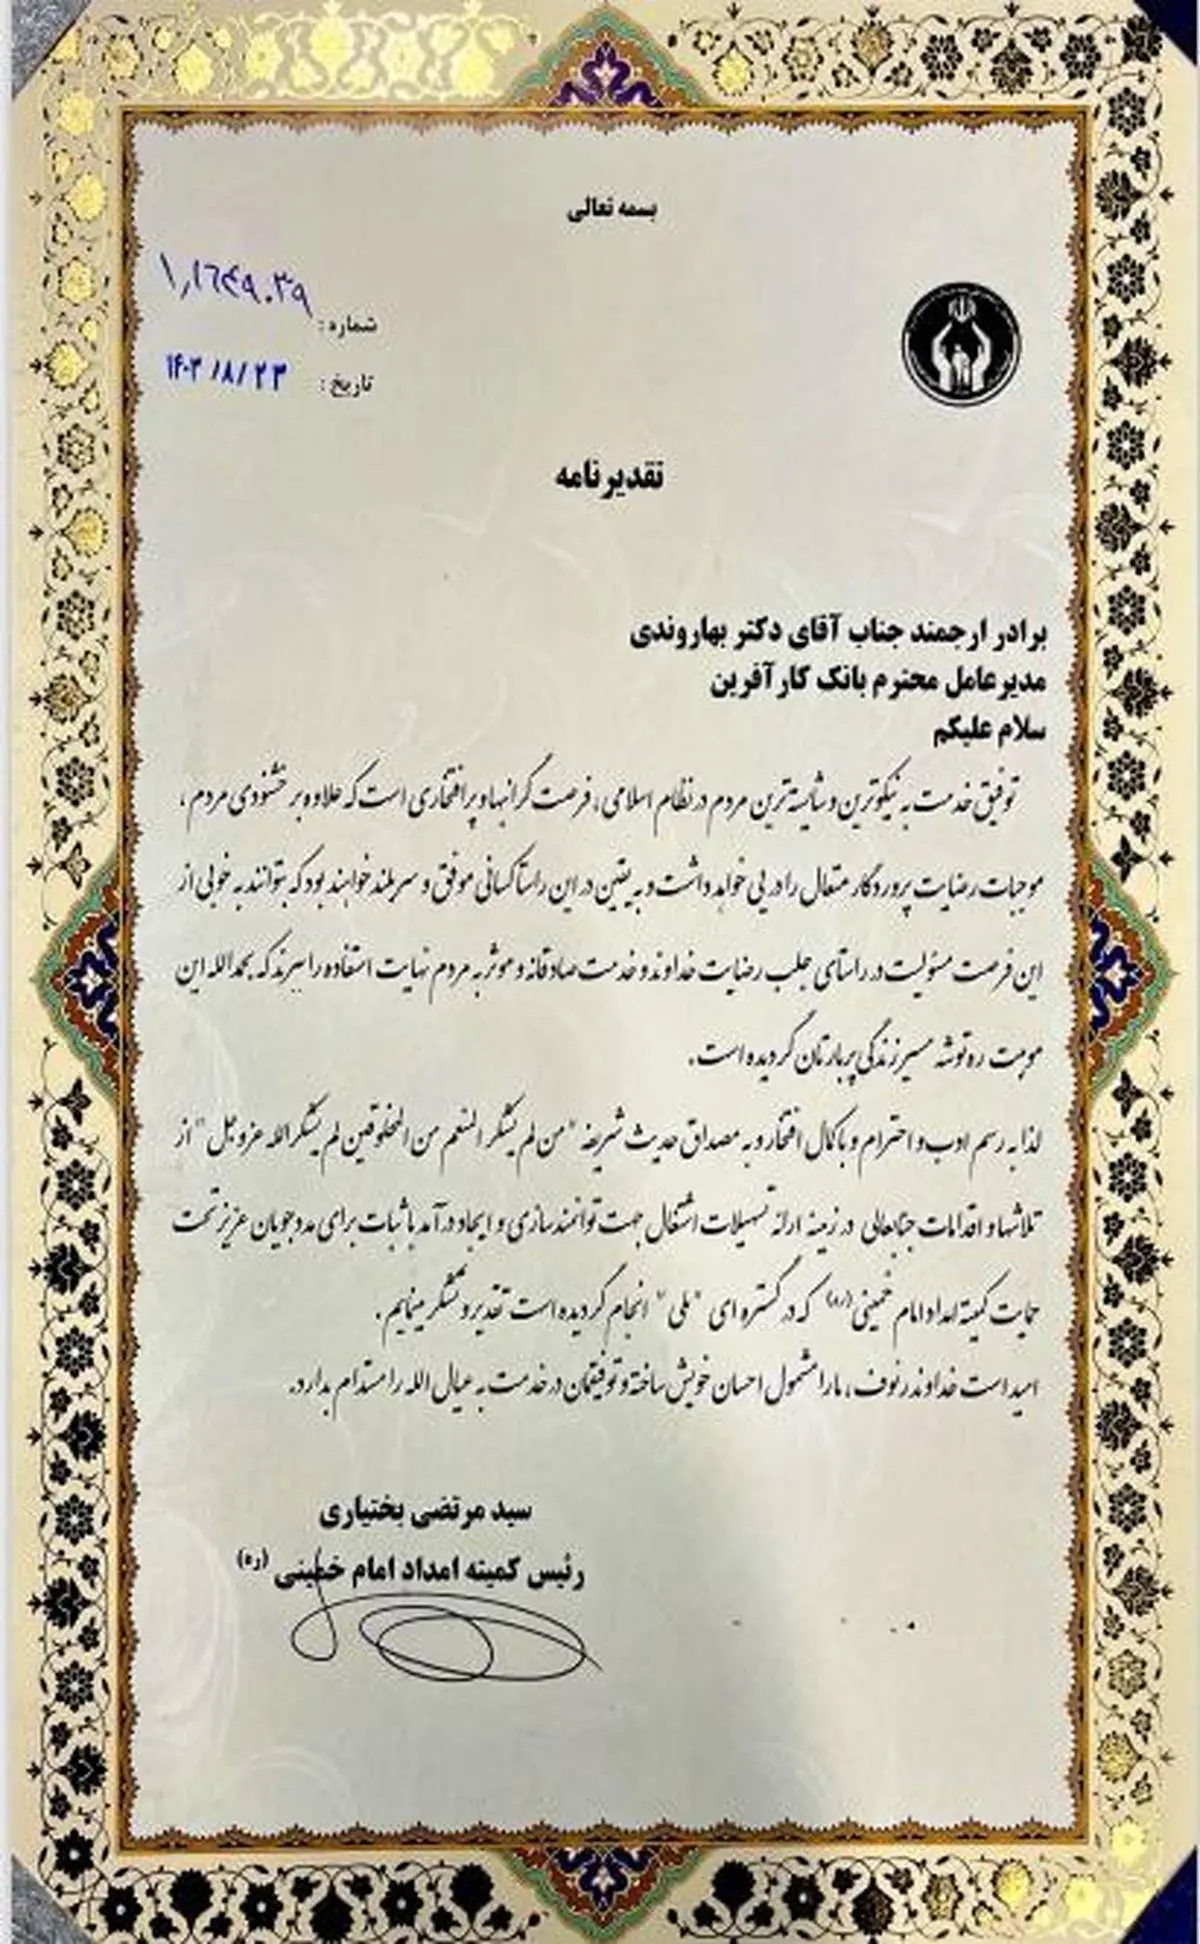 بسمه تعالی
شماره :
تاریخ : ۱۴۰۳/۸/۲۳
تقدیرنامه
برادر ارجمند جناب آقای دکتر بهاروندی
مدیرعامل محترم بانک کارآفرین
سلام علیکم
توفیق خدمت به نیکوترین و شایسته‌ترین مردم در نظام اسلامی، فرصت گرانبها و پرافتخاری است که علاوه بر خشنودی مردم،
موجبات رضایت پروردگار متعال را در پی خواهد داشت و به یقین در این راستا کسانی موفق و سربلند خواهند بود که بتوانند به خوبی از
این فرصت مسئولیت در راستای جلب رضایت خداوند و خدمت صادقانه و موثر به مردم نهایت استفاده را ببرند که بحمدالله این
موهبت ره توشه مسیر زندگی پربارتان گردیده است.
لذا به رسم ادب و احترام و با کمال افتخار و به مصداق حدیث شریفه "من لم یشکر المنعم من المخلوقین لم یشکر الله عزوجل" از
تلاشها و اقدامات جنابعالی در زمینه ارائه تسهیلات اشتغال جهت توانمندسازی و ایجاد درآمد با ثبات برای مددجویان عزیز تحت
حمایت کمیته امداد امام خمینی (ره) که در گستره ای "ملی" انجام گردیده است تقدیر و تشکر مینمایم.
امید است خداوند رئوف، ما را مشمول احسان خویش ساخته و توفیقمان در خدمت به عیال الله را مستدام بدارد.
سید مرتضی بختیاری
رئیس کمیته امداد امام خمینی (ره)